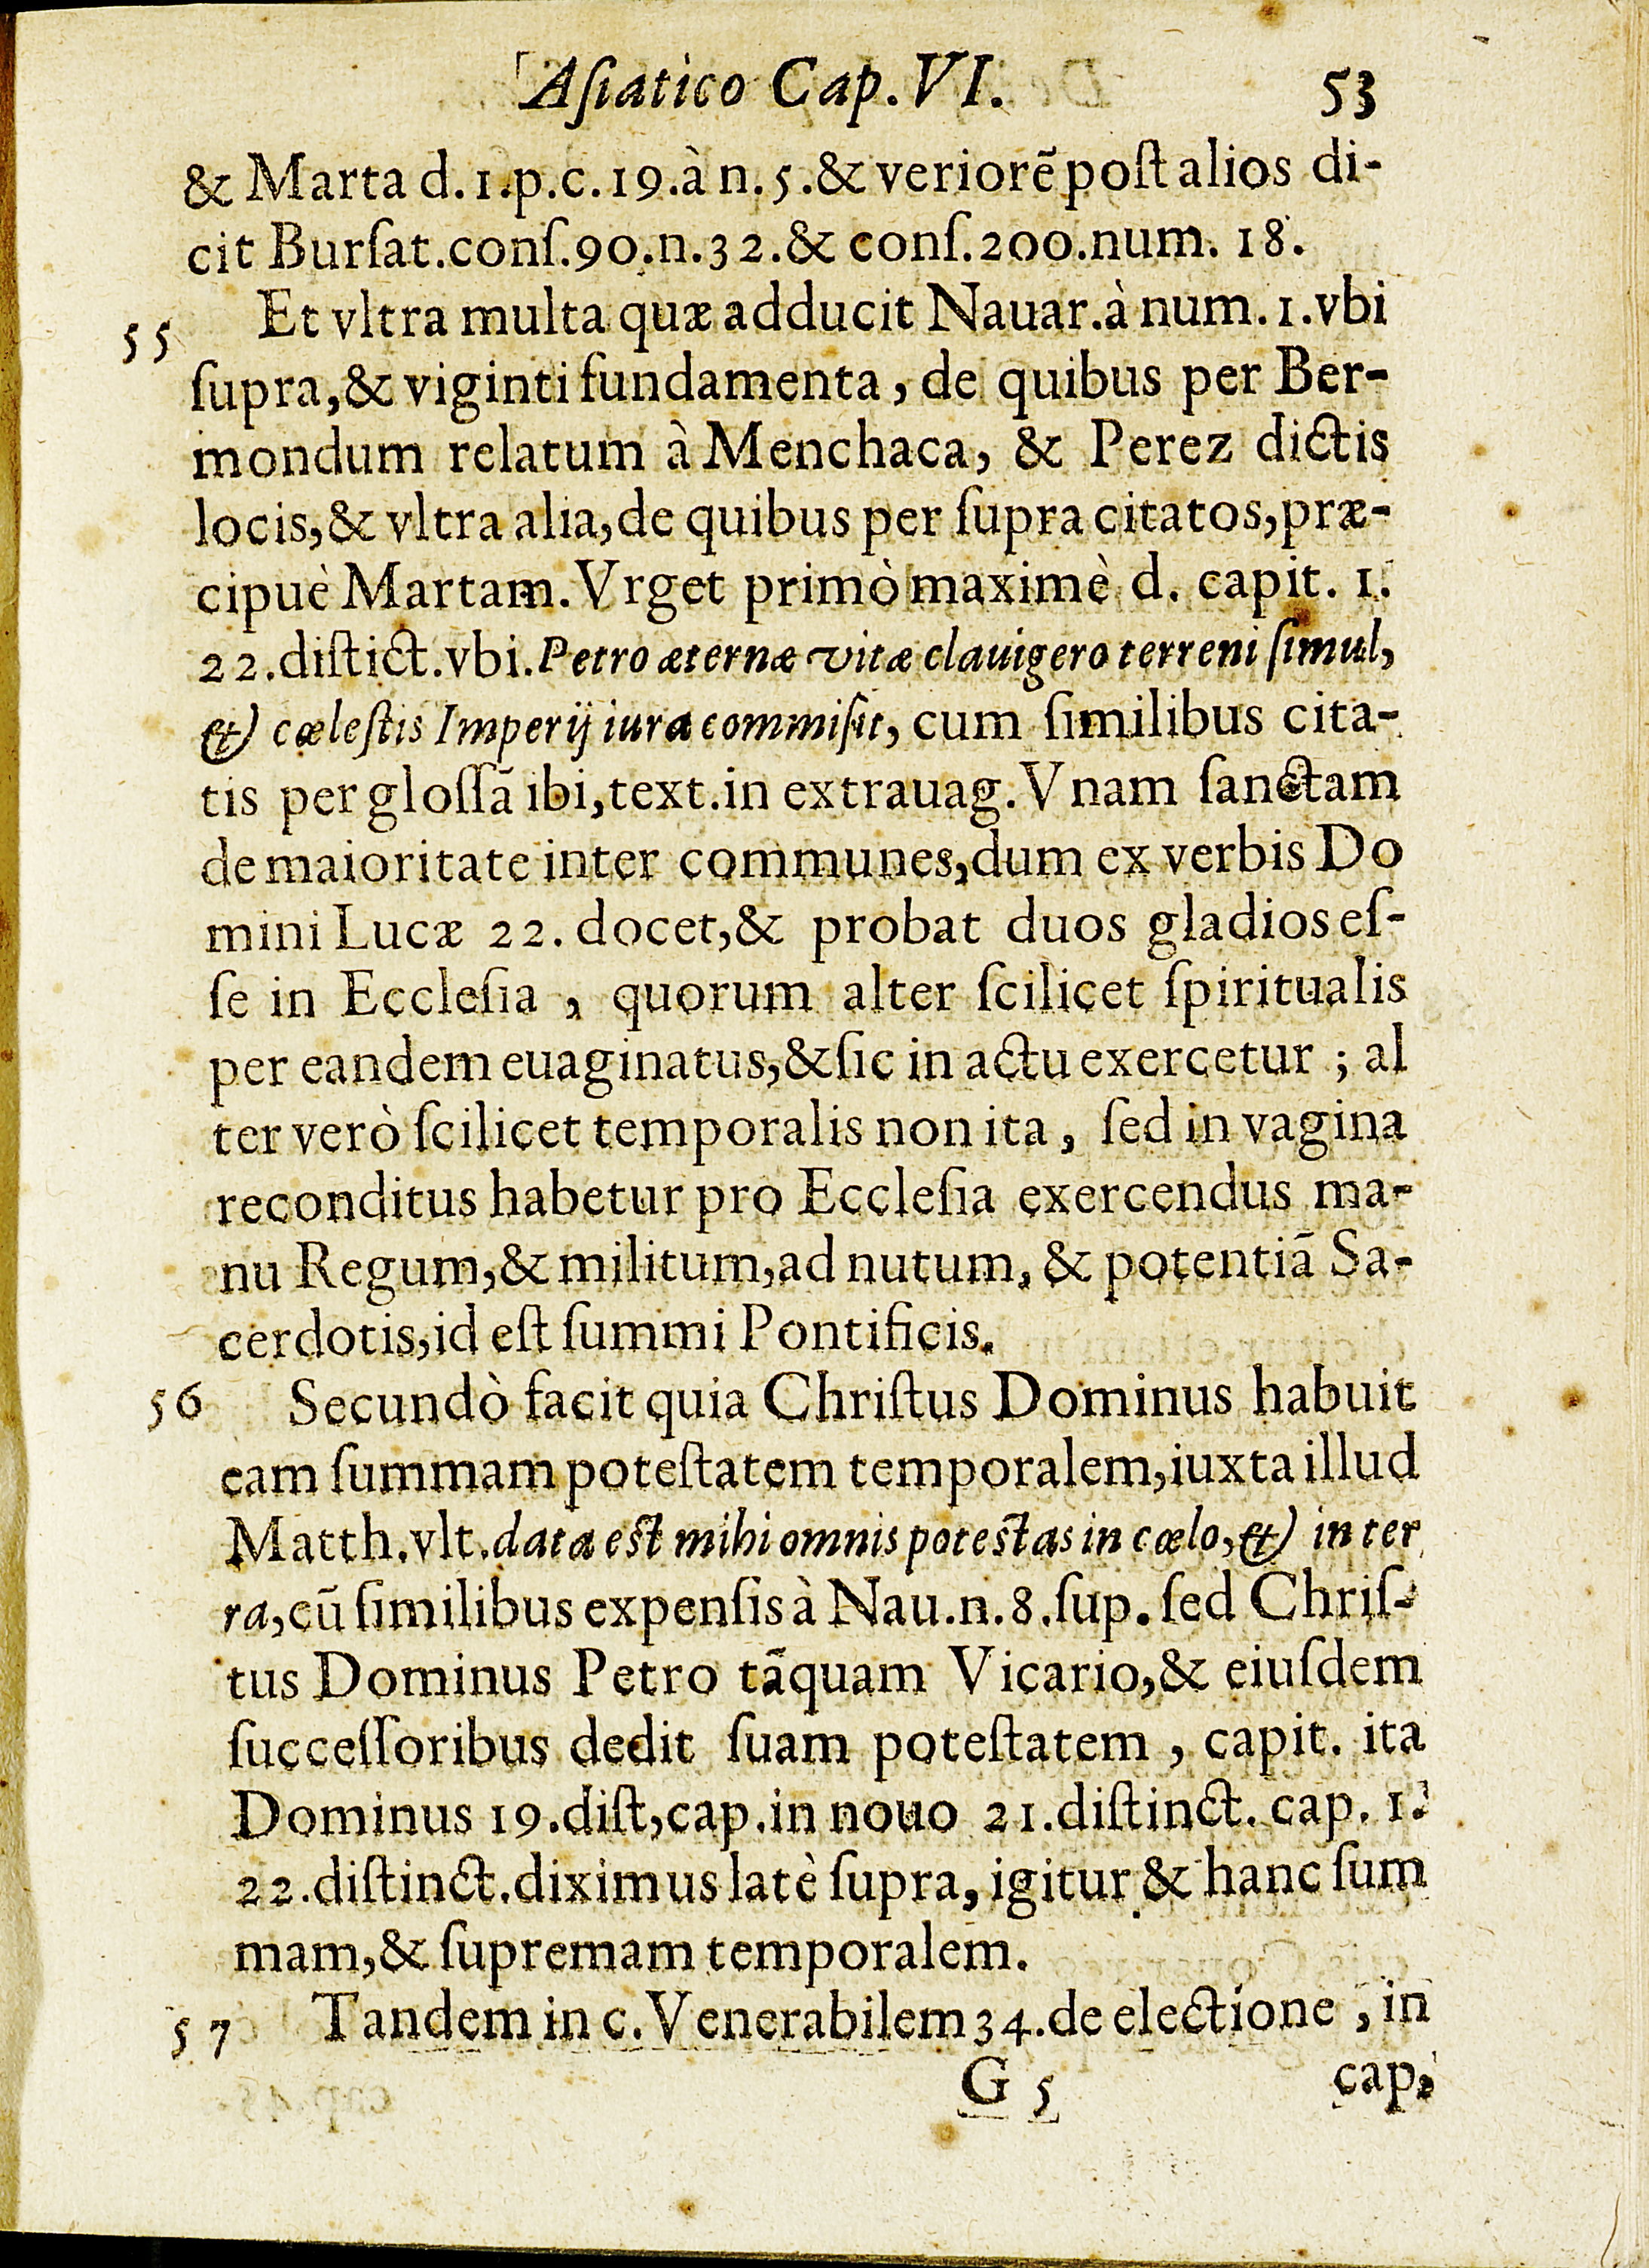 Aſiatico Cap. VI. 53
& Marta d. 1.p.c. 19.à n. 5.& veriorē poſt alios di-
cit Burſat.conſ.90.n.32.& conſ.200.num. 18.
55 Et vltra multa quæ adducit Nauar.à num. 1.vbi
ſupra,& viginti fundamenta, de quibus per Ber-
mondum relatum à Menchaca, & Perez dictis
locis,& vltra alia,de quibus per ſupra citatos,præ-
cipuè Martam. Vrget primò maximè d. capit. 1.
22.diſtict.vbi.Petro æternæ vitæ clauigero terreni ſimul,
& cæleſtis Imperij iura commiſit, cum ſimilibus cita-
tis per gloſſã ibi,text.in extrauag. Vnam ſanctam
de maioritate inter communes,dum ex verbis Do
mini Lucæ 22. docet,& probat duos gladios eſ-
ſe in Eccleſia , quorum alter ſcilicet ſpiritualis
per eandem euaginatus,& ſic in actu exercetur ; al
ter verò ſcilicet temporalis non ita , ſed in vagina
reconditus habetur pro Eccleſia exercendus ma-
nu Regum,& militum,ad nutum, & potentiã Sa-
cerdotis,id eſt ſummi Pontificis.
56 Secundò facit quia Chriſtus Dominus habuit
eam ſummam poteſtatem temporalem,iuxta illud
Matth.vlt.data eſt mihi omnis poteſtas in cœlo,& in ter
ra,cū ſimilibus expenſis à Nau.n.8.ſup. ſed Chriſ-
tus Dominus Petro tãquam Vicario,& eiuſdem
ſucceſſoribus dedit ſuam poteſtatem , capit. ita
Dominus 19.diſt,cap.in nouo 21.diſtinct. cap. 1.
22.diſtinct.diximus latè ſupra, igitur & hanc ſum
mam,& ſupremam temporalem.
57 Tandem in c. Venerabilem 34.de electione , in
G 5 cap.